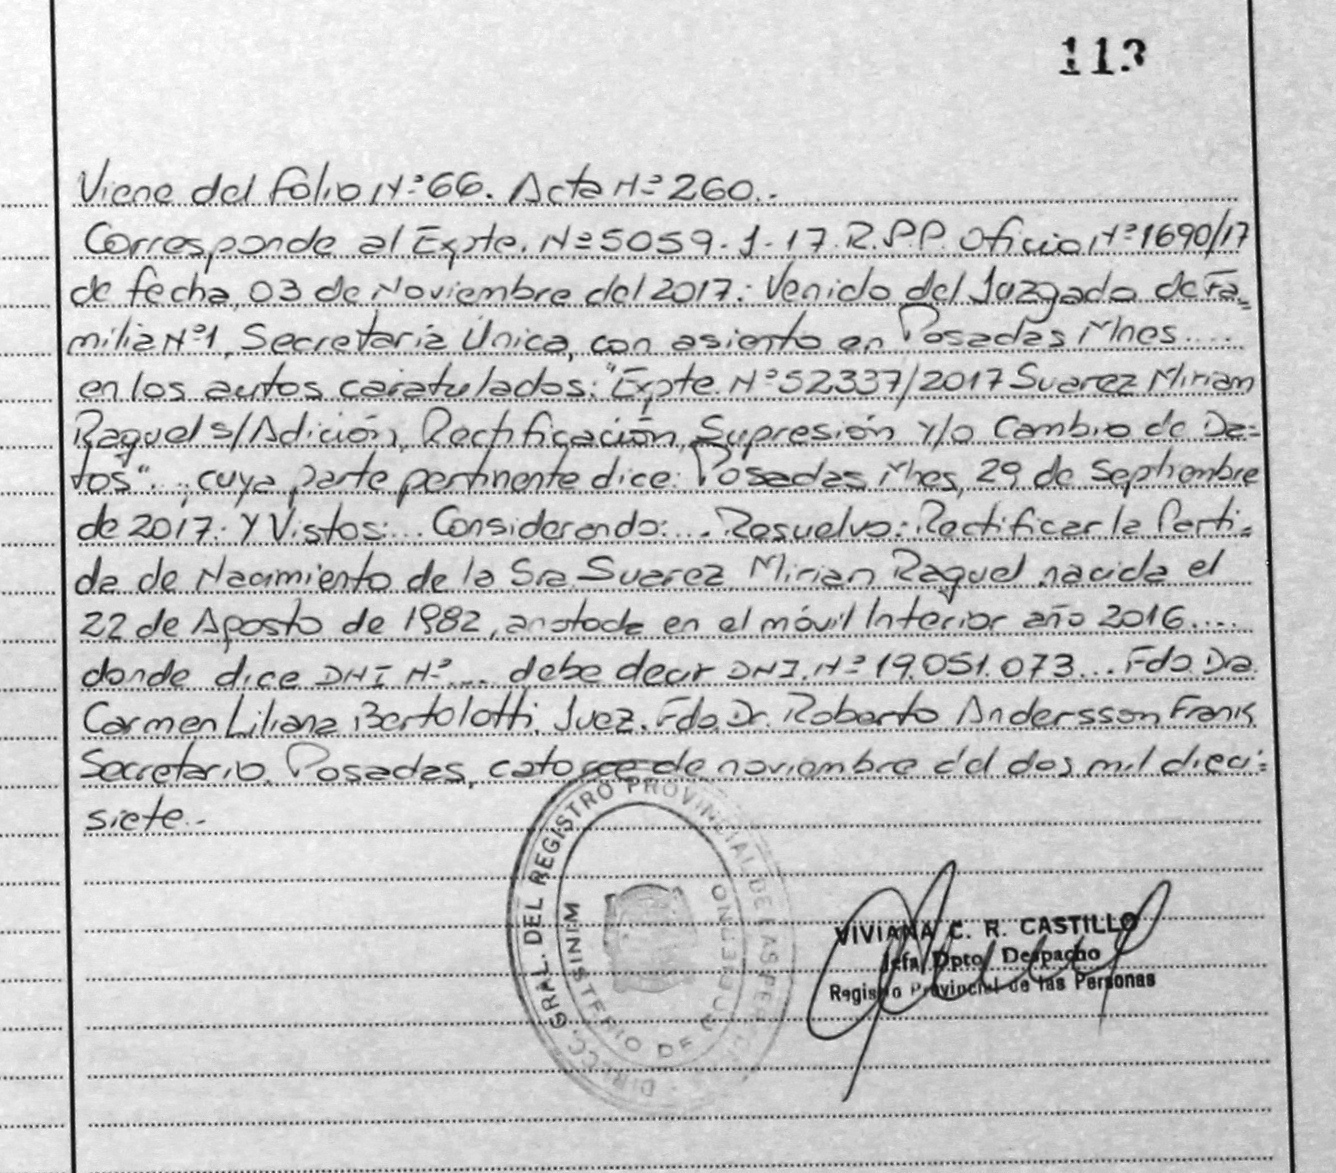 113
Viene del folio Nº 66. Acta Nº 260..
Corresponde al Expte. Nº 5059-J-17. R.P.P. Oficio Nº 1690/17
de fecha, 03 de Noviembre del 2017: Venido del Juzgado de Fa=
milia Nº1, Secretaría Única, con asiento en Posadas Mnes....
en los autos caratulados: "Expte. Nº 52337/2017 Suarez Mirian
Raquel s/Adición, Rectificación, Supresión y/o Cambio de Da=
tos"..; cuya parte pertinente dice: Posadas Mnes, 29 de Septiembre
de 2017. Y Vistos:... Considerando:.... Resuelvo: Rectificar la Parti=
da de Nacimiento de la Sra. Suarez Mirian Raquel nacida el
22 de Agosto de 1982, anotada en el móvil Interior año 2016....
donde dice DNI Nº.... debe decir DNI. Nº 19.051.073... Fdo Dra.
Carmen Liliana Bertolotti. Juez. Fdo. Dr. Roberto Andersson Frank
Secretario. Posadas, catorce de noviembre del dos mil dieci=
siete.-
DIRECC. GRAL. DEL REGISTRO PROVINCIAL DE LAS PERSONAS
MINISTERIO DE GOBIERNO
VIVIANA C. R. CASTILLO
Jefa Dpto. Despacho
Registro Provincial de las Personas